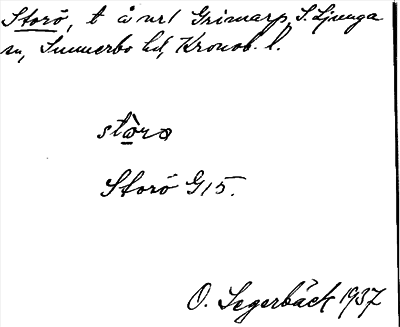 Storö, t å nr 1 Grimarp, S. Ljunga
sn, Sunnerbo hd, Kronob. l.
stòrə
Storö G15.
O. Segerbäck 1937